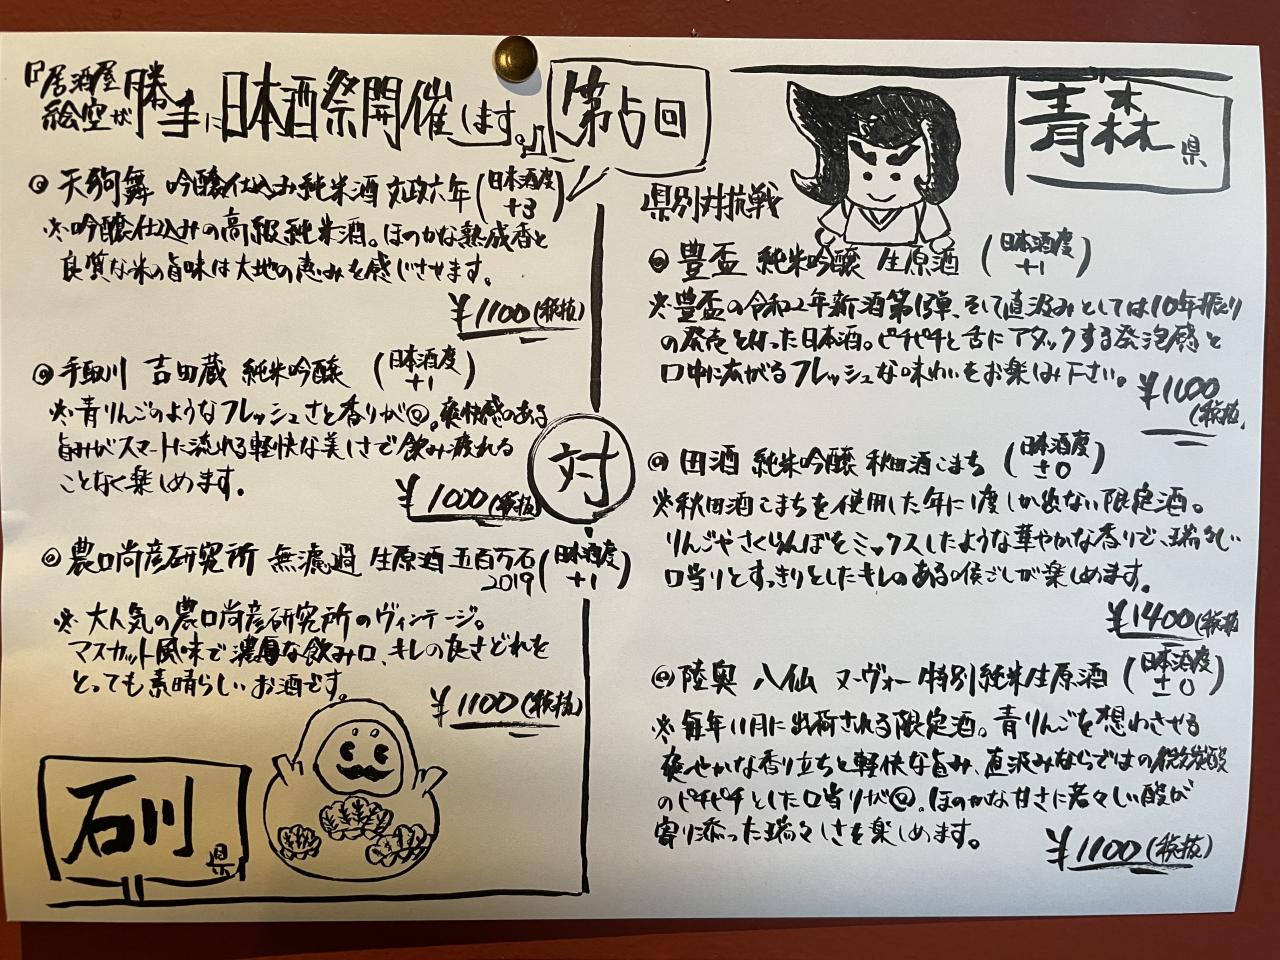 『居酒屋
絵空が勝手に日本酒祭開催します。♫
第5回
県別対抗戦
天狗舞 吟醸仕込み純米酒 文政六年(日本酒度 +3)
※吟醸仕込みの高級純米酒。ほのかな熟成香と
良質な米の旨味は大地の恵みを感じさせます。
¥1100(税抜)
手取川 吉田蔵 純米吟醸 (日本酒度 +1)
※青りんごのようなフレッシュさと香りが◎。爽快感のある
旨みがスマートに流れる軽快な美しさで飲み疲れる
ことなく楽しめます。
¥1000(税抜)
農口尚彦研究所 無濾過 生原酒 五百万石 2019(日本酒度 +1)
※大人気の農口尚彦研究所のヴィンテージ。
マスカット風味で濃厚な飲み口、キレの良さどれを
とっても素晴らしいお酒です。
¥1100(税抜)
石川県
対
青森県
豊盃 純米吟醸 生原酒 (日本酒度 +1)
※豊盃の令和2年新酒第1弾、そして直汲みとしては10年振り
の発売となった日本酒。ピチピチと舌にアタックする発泡感と
口中に広がるフレッシュな味わいをお楽しみ下さい。
¥1100(税抜)
田酒 純米吟醸 秋田酒こまち (日本酒度 ±0)
※秋田酒こまちを使用した年に1度しか出ない限定酒。
りんごやさくらんぼをミックスしたような華やかな香りで、瑞々しい
口当りとすっきりとしたキレのある喉ごしが楽しめます。
¥1400(税抜)
陸奥 八仙 ヌーヴォー 特別純米生原酒 (日本酒度 ±0)
※毎年11月に出荷される限定酒。青りんごを想わさせる
爽やかな香り立ちと軽快な旨み、直汲みならではの微炭酸
のピチピチとした口当りが◎。ほのかな甘さに若々しい酸が
寄り添った瑞々しさを楽しめます。
¥1100(税抜)